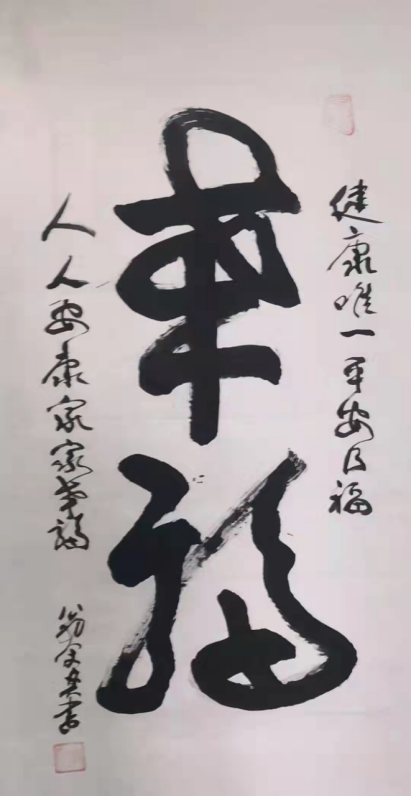 健康唯一平安乃福
幸福
人人安康家家幸福
书